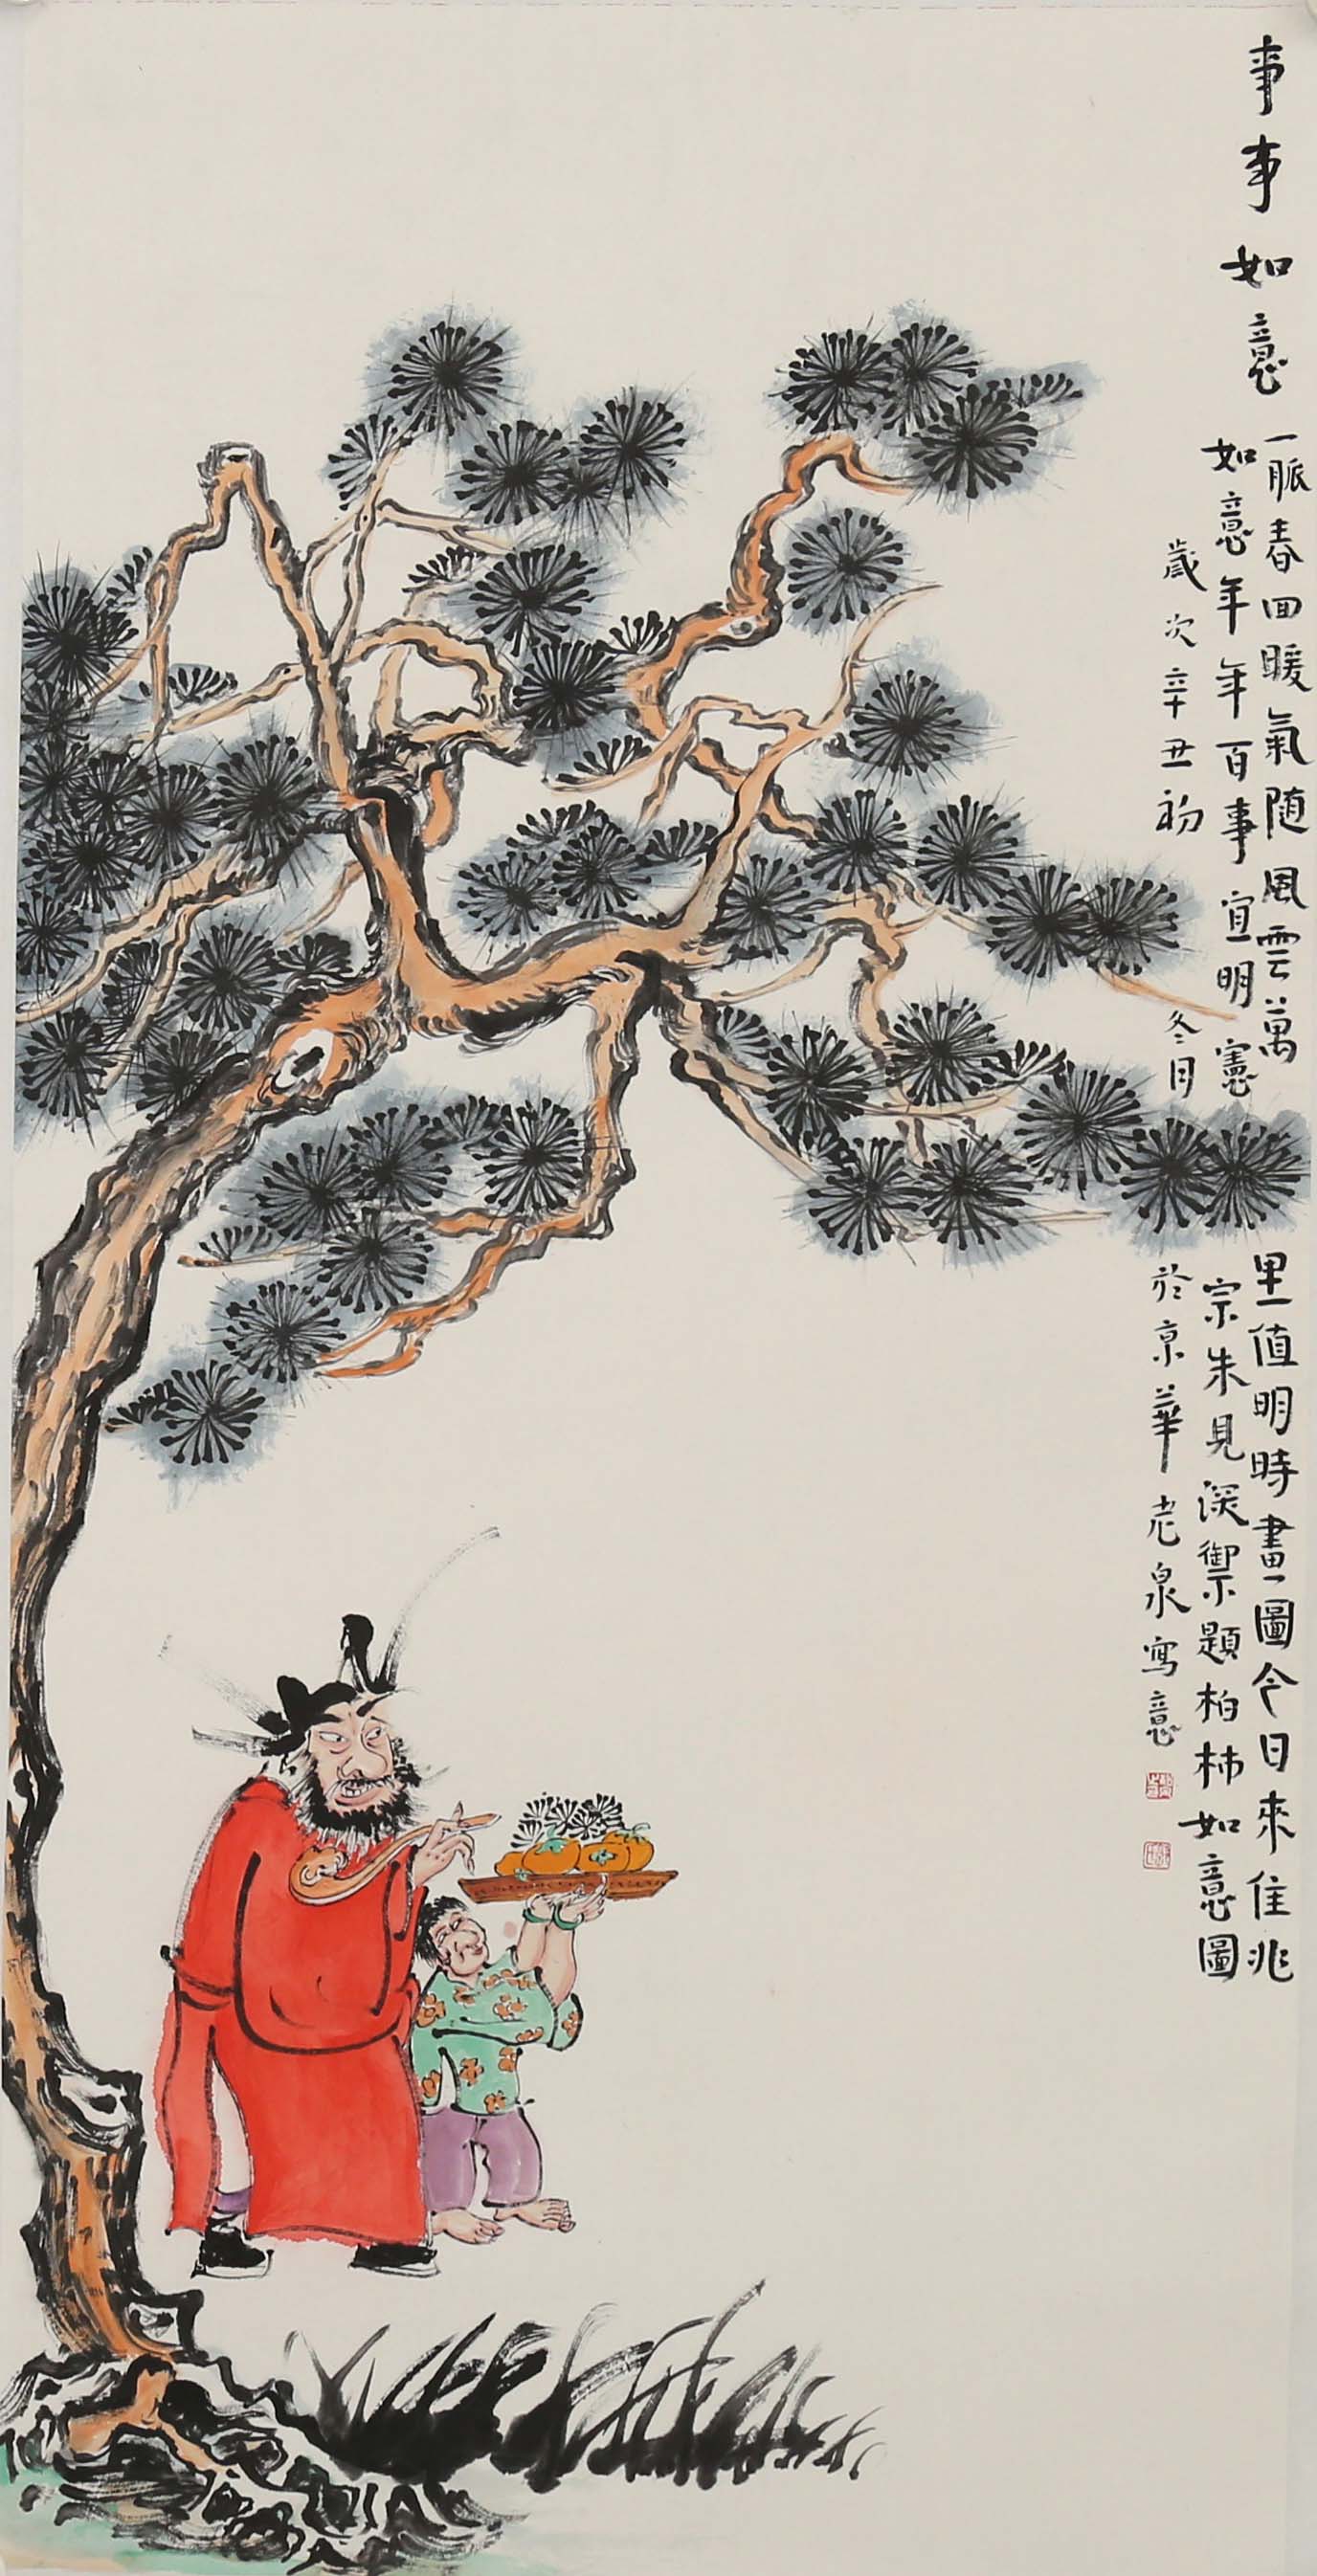 事事如意
一脈春回暖氣随風雲萬里值明時畫圖今日來佳兆
如意年年百事宜明憲宗朱見深禦題柏柿如意圖
歲次辛丑初冬月於京華老泉寫意